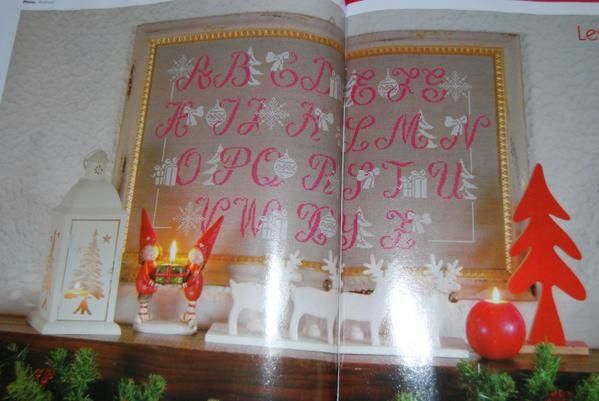 Le
A B C D E F G
H I J K L M N
O P Q R S T U
V W X Y Z